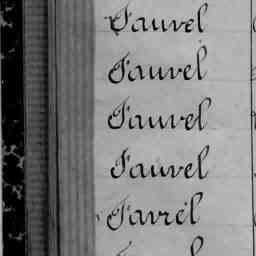 Fauvel
Fauvel
Fauvel
Fauvel
Favrel